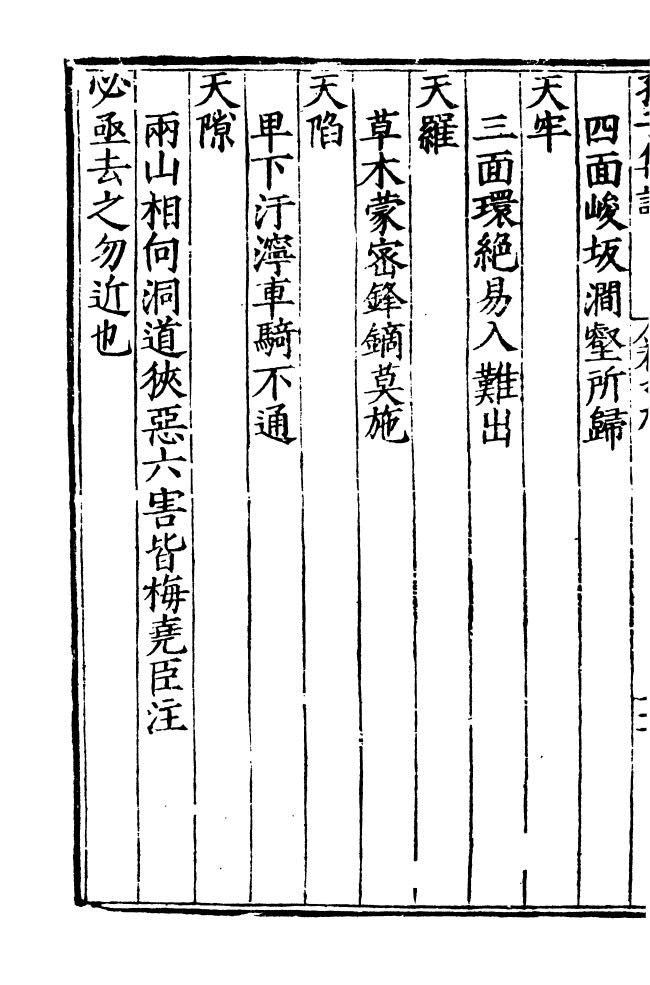 四面峻坂澗壑所歸
天牢
三面環絕易入難出
天羅
草木蒙密鋒鏑莫施
天陷
卑下汙濘車騎不通
天隙
兩山相向洞道狹惡六害皆梅堯臣注
必亟去之勿近也